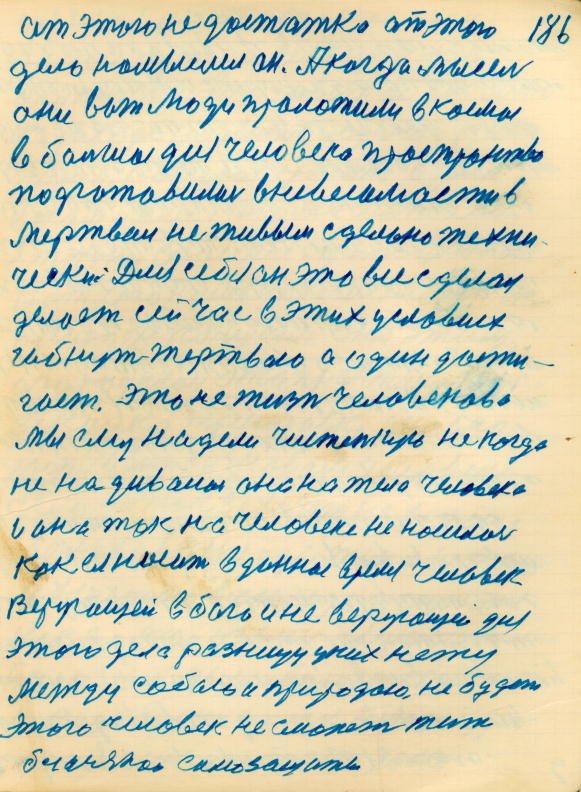 от этого не достатка от этого 186
дело помысил он. А когда мысел
они вот люди проложили в космос
в большое для человека пространство
подготовилос в невесамости в
мертвом не живым сдельно техни-
ческий Для себя он это все сделал
делает сейчас в этих условиях
гибнут жертвою а один дости-
гает. Это не жизн человекова
мы ему надели чужую никогда
не надивалос она на тело человека
и она так на человеке не носилас
как ея носит в данное время человек
верующей в бога и не верующей для
этого дела разницу у них нежу
между собою и природою не будет
этого человек не сможет жит
благая самозащиты